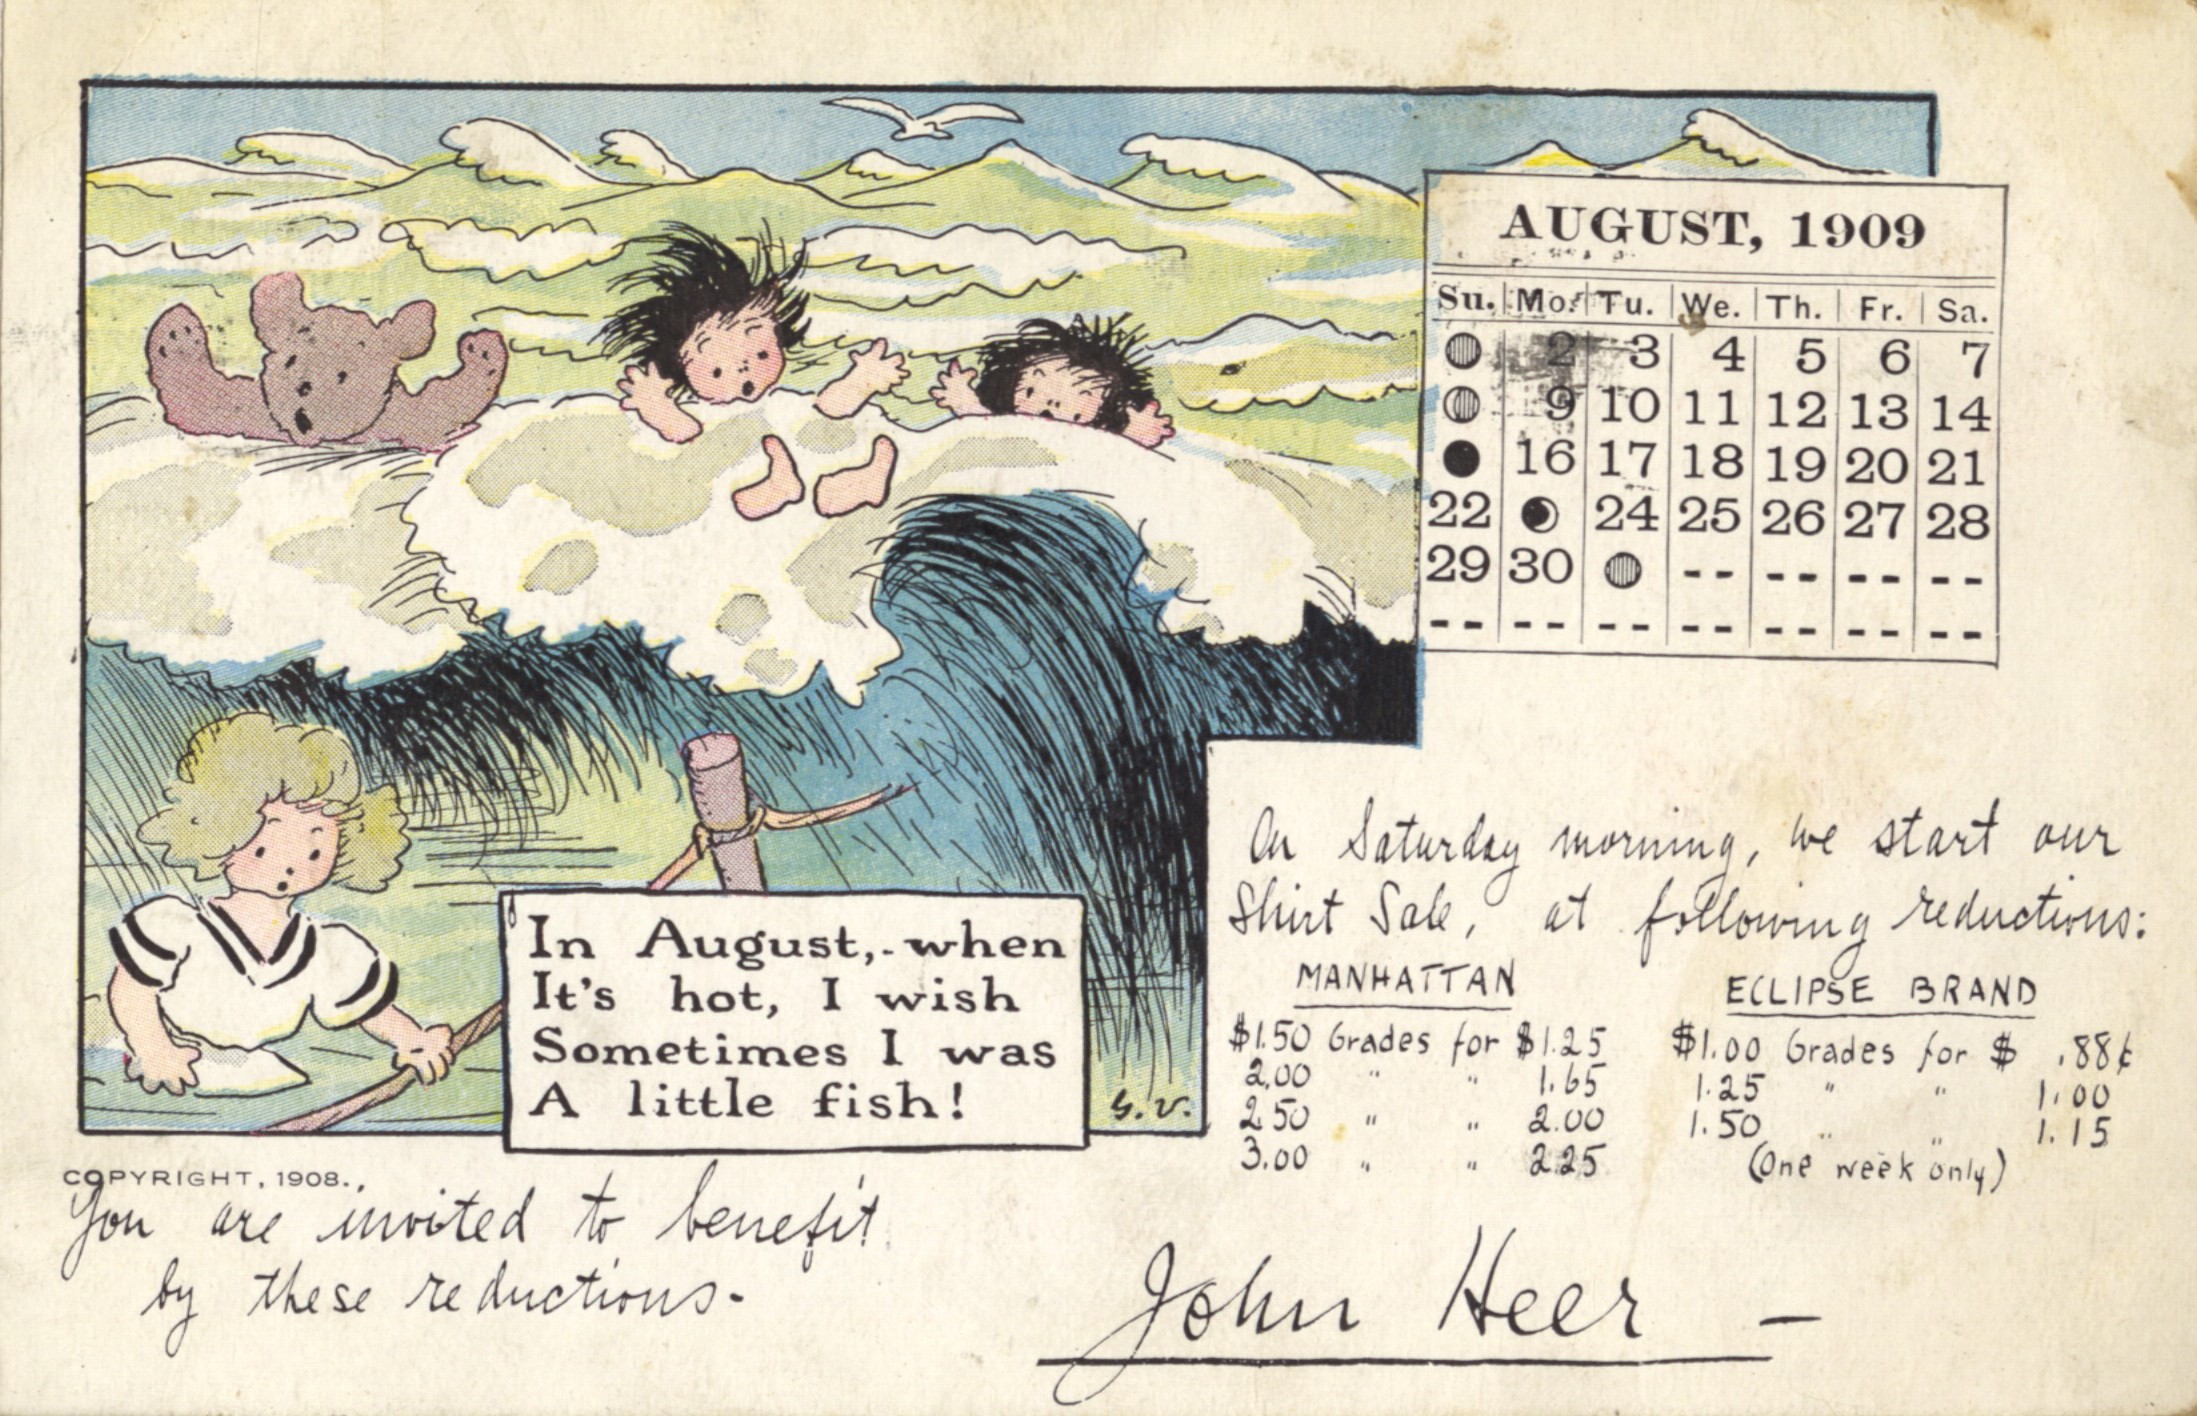 AUGUST, 1909
Su. Mo. Tu. We. Th. Fr. Sa.
2 3 4 5 6 7
9 10 11 12 13 14
16 17 18 19 20 21
22 24 25 26 27 28
29 30 -- -- -- --
-- -- -- -- -- -- --
In August, - when
It's hot, I wish
Sometimes I was
A little fish!
G. V.
COPYRIGHT, 1908.,
On Saturday morning, we start our
Shirt Sale, at following reductions:
MANHATTAN
$1.50 Grades for $1.25
2.00 " " 1.65
2.50 " " 2.00
3.00 " " 2.25
ECLIPSE BRAND
$1.00 Grades for $ .88¢
1.25 " " 1.00
1.50 " " 1.15
(One week only)
You are invited to benefit
by these reductions.-
John Heer -